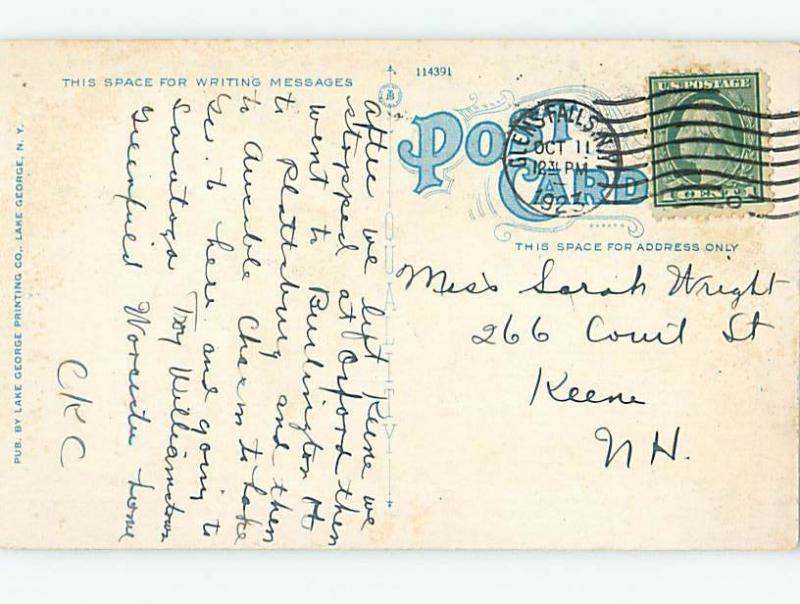 THIS SPACE FOR WRITING MESSAGES
114391
POST CARD
GLENS FALLS, N.Y.
OCT 11
12 30 PM
1923
U.S. POSTAGE
THIS SPACE FOR ADDRESS ONLY
After we left Keene we
stopped at Orford then
went to Burlington Vt
to Plattsburg and then
to Ausable Chasm to Lake
Geo. to here and going to
Saratoga Troy Williamstown
Greenfield Worcester home
CKC
Miss Sarah Wright
266 Court St
Keene
N.H.
PUB. BY LAKE GEORGE PRINTING CO., LAKE GEORGE, N. Y.